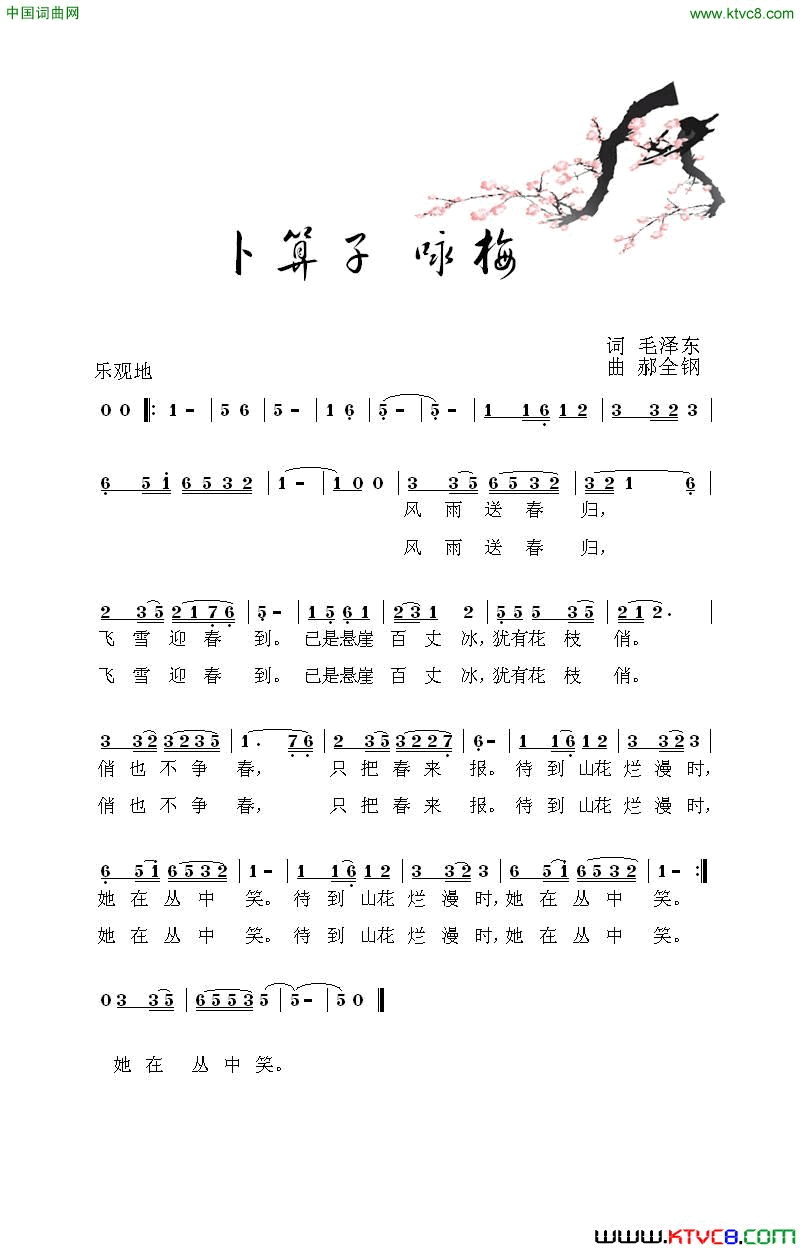 中国词曲网
www.ktvc8.com
卜算子 咏梅
词 毛泽东
曲 郝全钢
乐观地
0 0 ‖: 1 - | 5 6 | 5 - | 1 6 | 5 - | 5 - | 1 1 1 6 1 2 | 3 3 2 3 |
6 5 1 6 5 3 2 | 1 - | 1 0 0 | 3 3 5 6 5 3 2 | 3 2 1 6 |
风 雨 送 春 归,
风 雨 送 春 归,
2 3 5 2 1 7 6 | 5 - | 1 5 6 1 | 2 3 1 2 | 5 5 5 3 5 | 2 1 2 . |
飞 雪 迎 春 到。 已是悬崖 百 丈 冰, 犹有花 枝 俏。
飞 雪 迎 春 到。 已是悬崖 百 丈 冰, 犹有花 枝 俏。
3 3 2 3 2 3 5 | 1 . 7 6 | 2 3 5 3 2 2 7 | 6 - | 1 1 6 1 2 | 3 3 2 3 |
俏 也 不 争 春, 只 把 春 来 报。 待 到 山花 烂 漫 时,
俏 也 不 争 春, 只 把 春 来 报。 待 到 山花 烂 漫 时,
6 5 1 6 5 3 2 | 1 - | 1 1 6 1 2 | 3 3 2 3 | 6 5 1 6 5 3 2 | 1 - :‖
她 在 丛 中 笑。 待 到 山花 烂 漫 时, 她 在 丛 中 笑。
她 在 丛 中 笑。 待 到 山花 烂 漫 时, 她 在 丛 中 笑。
0 3 3 5 | 6 5 5 3 5 | 5 - | 5 0 ‖
她 在 丛 中 笑。
www.KTVC8.com